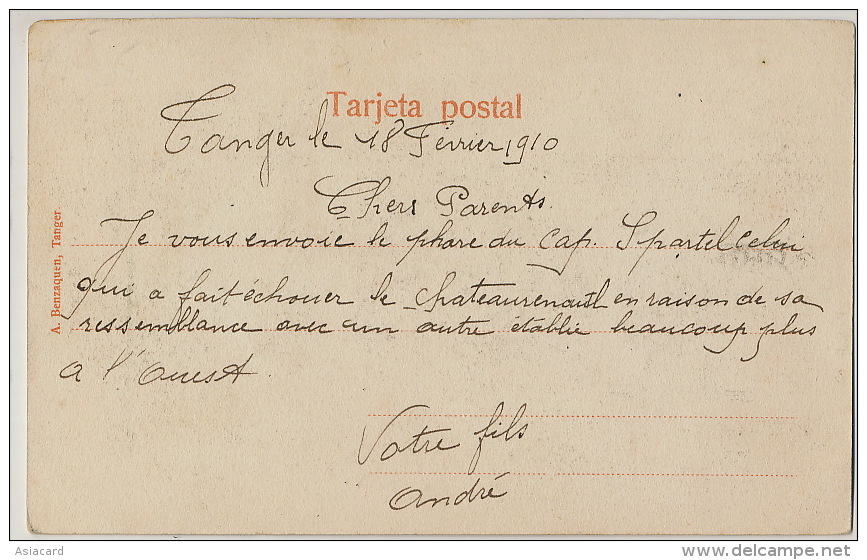 Tarjeta postal
Tanger le 18 Février 1910
Chers Parents.
Je vous envoie le phare du Cap. Spartel celui
qui a fait échouer le chateaurenault en raison de sa
ressemblance avec un autre établie beaucoup plus
a l'ouest.
Votre fils
André
A. Benzaquen, Tanger
Asiacard
www.delcampe.net